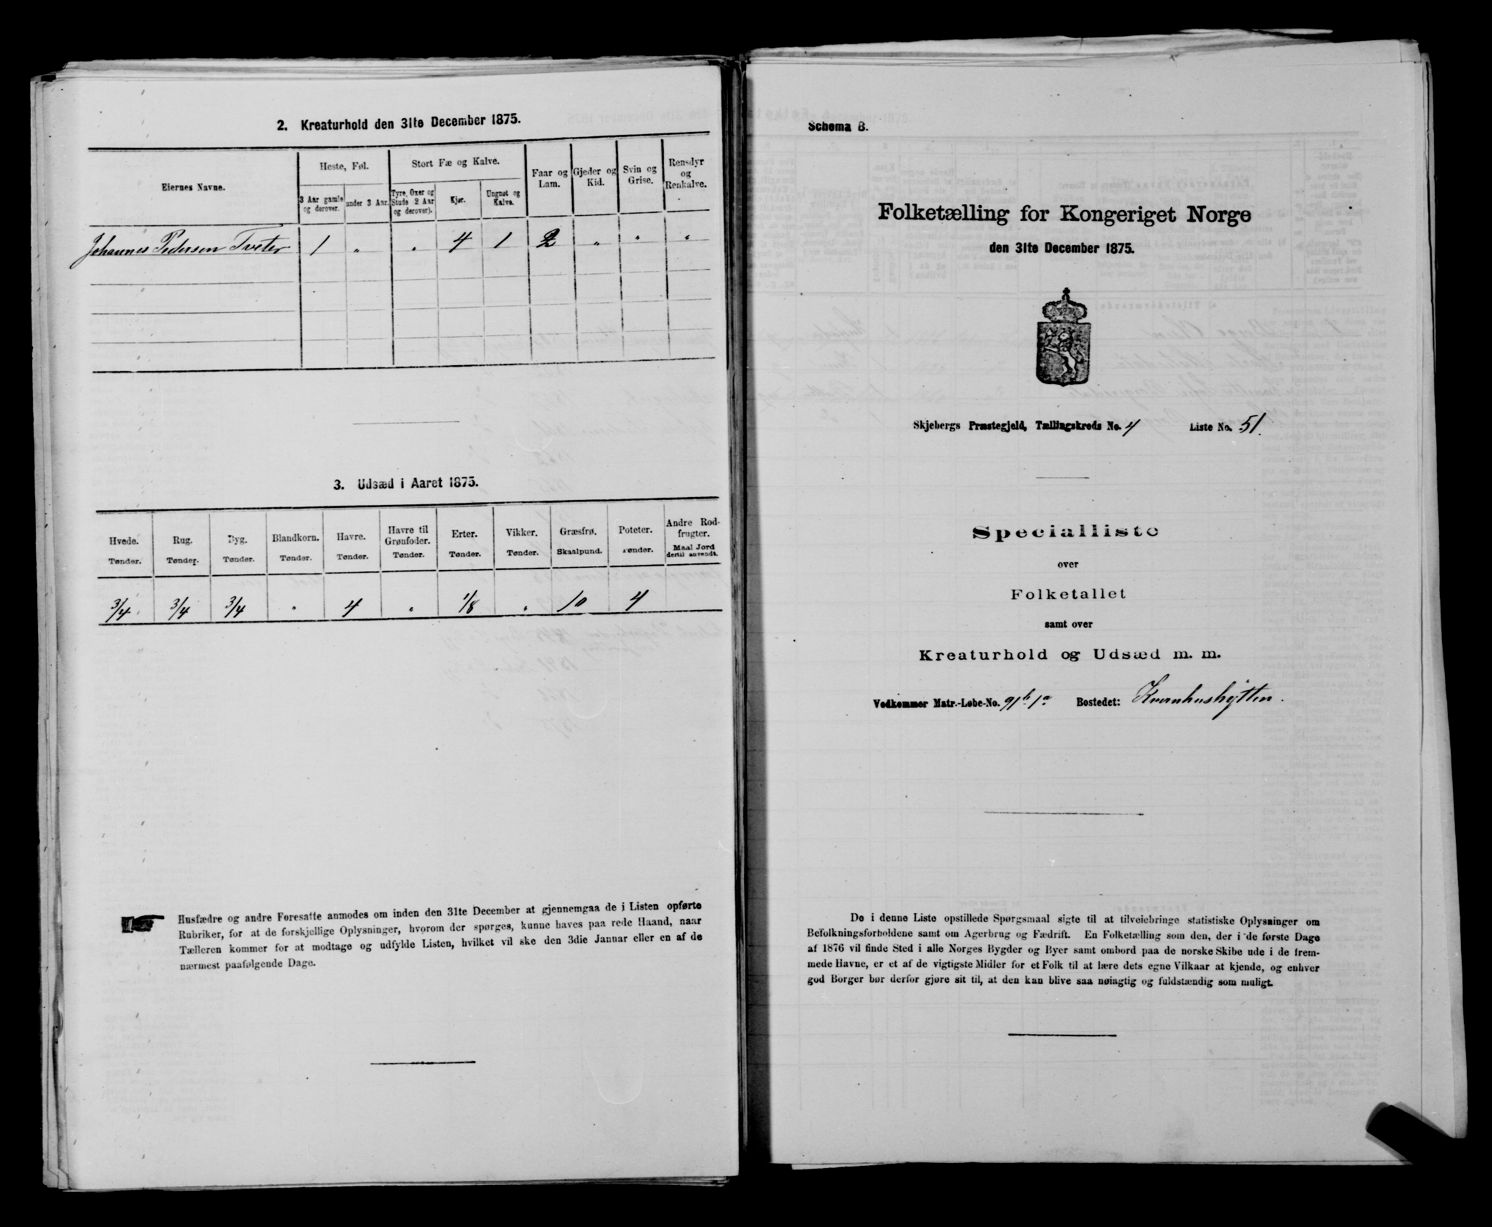 2. Kreaturhold den 31te December 1875.
Eiernes Navne.
Heste, Føl.
3 Aar gamle og derover.
under 3 Aar.
Stort Fæ og Kalve.
Tyre, Oxer og Stude 2 Aar og derover).
Kjør.
Ungnøt og Kalve.
Faar og Lam.
Gjeder og Kid.
Svin og Grise.
Rensdyr og Renkalve.
Johannes Pedersen Tveter 1 " " 4 1 2 " " "
3. Udsæd i Aaret 1875.
Hvede. Rug. Byg. Blandkorn. Havre. Havre til Grønfoder. Erter. Vikker. Græsfrø. Poteter. Andre Rodfrugter.
Tønder. Tønder. Tønder. Tønder. Tønder. Tønder. Tønder. Tønder. Skaalpund. Tønder. Maal Jord dertil anvendt.
3/4 3/4 3/4 " 4 " 1/8 " 10 4
Husfædre og andre Foresatte anmodes om inden den 31te December at gjennemgaa de i Listen opførte
Rubriker, for at de forskjellige Oplysninger, hvorom der spørges, kunne haves paa rede Haand, naar
Tælleren kommer for at modtage og udfylde Listen, hvilket vil ske den 3die Januar eller en af de
nærmest paafølgende Dage.
Schema B.
Folketælling for Kongeriget Norge
den 31te December 1875.
Skjebergs Præstegjeld, Tællingskreds No. 4 Liste No. 51.
Specialliste
over
Folketallet
samt over
Kreaturhold og Udsæd m. m.
Vedkommer Matr.-Løbe-No. 91b 1a Bostedet: Kvernhushytten.
De i denne Liste opstillede Spørgsmaal sigte til at tilveiebringe statistiske Oplysninger om
Befolkningsforholdene samt om Agerbrug og Fædrift. En Folketælling som den, der i de første Dage
af 1876 vil finde Sted i alle Norges Bygder og Byer samt ombord paa de norske Skibe ude i de frem-
mede Havne, er et af de vigtigste Midler for et Folk til at lære dets egne Vilkaar at kjende, og enhver
god Borger bør derfor gjøre sit til, at den kan blive saa nøiagtig og fuldstændig som muligt.